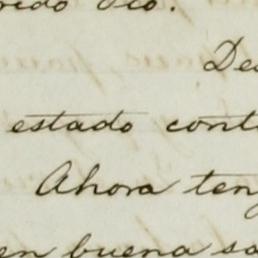 De
estado cont
Ahora ten
en buena sa